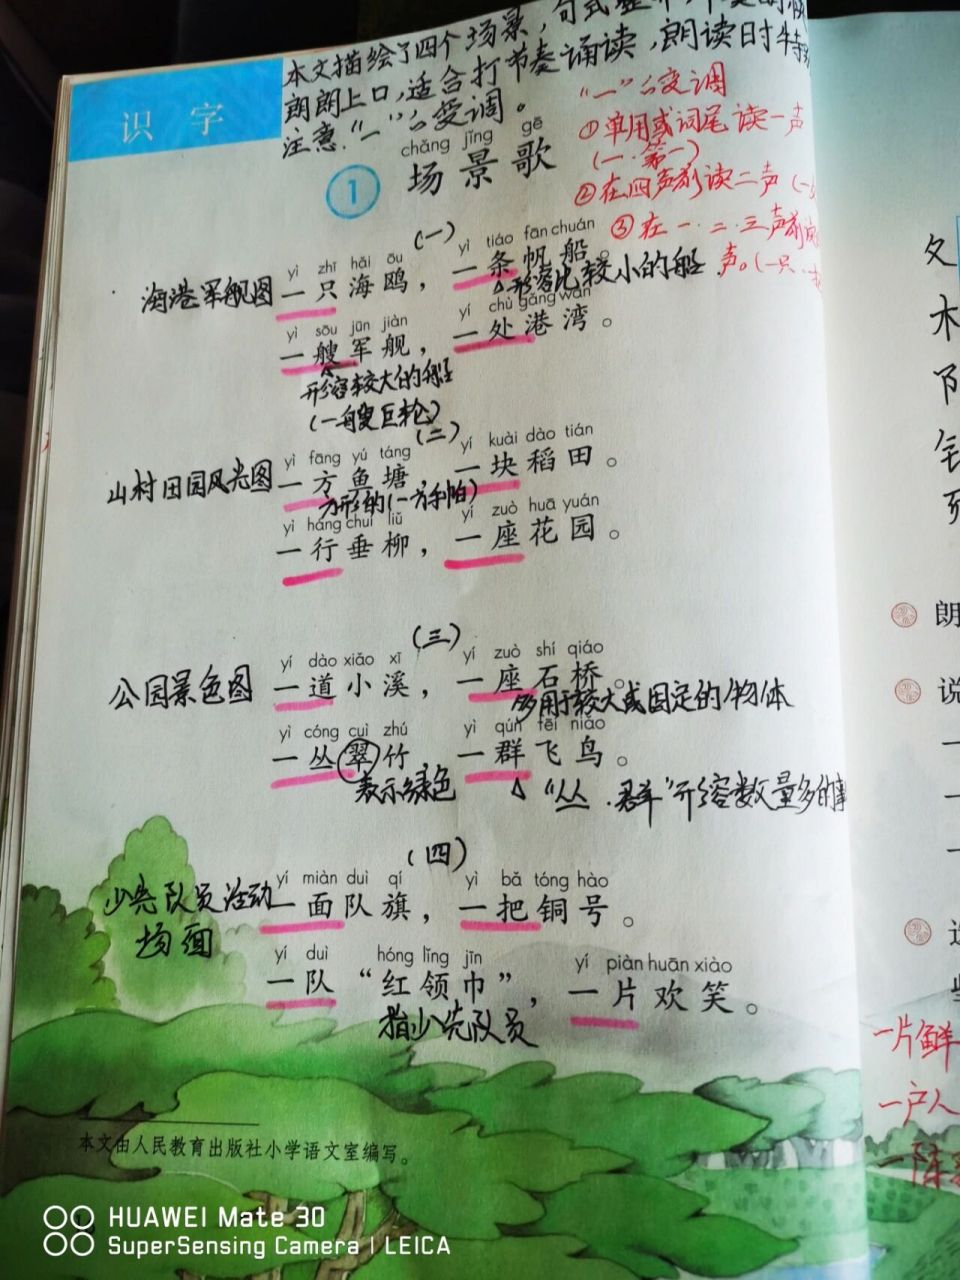 本文描绘了四个场景，句式整齐，
朗朗上口，适合打节奏诵读，朗读时特别
注意“一”的变调。
识字
“一”的变调
①单用或词尾读一声
(一.第一)
②在四声前读二声(一
③在一.二.三声前读
声。(一只.
chǎng jǐng gē
1 场景歌
(一)
海港军舰图
yì zhī hǎi ōu yì tiáo fān chuán
一只海鸥，一条帆船。
形容比较小的船
yì sōu jūn jiàn yí chù gǎng wān
一艘军舰，一处港湾。
形容较大的船
(一艘巨轮)
(二)
山村田园风光图
yì fāng yú táng yí kuài dào tián
一方鱼塘，一块稻田。
方形的(一方手帕)
yì háng chuí liǔ yí zuò huā yuán
一行垂柳，一座花园。
(三)
公园景色图
yí dào xiǎo xī yí zuò shí qiáo
一道小溪，一座石桥。
多用于较大或固定的物体
yì cóng cuì zhú yì qún fēi niǎo
一丛翠竹，一群飞鸟。
表示绿色
“丛.群”形容数量多的事
(四)
少先队员活动
场面
yí miàn duì qí yì bǎ tóng hào
一面队旗，一把铜号。
yí duì hóng lǐng jīn yí piàn huān xiào
一队“红领巾”，一片欢笑。
指少先队员
本文由人民教育出版社小学语文室编写。
夂
木
阝
朗
说
一
一
一
一片鲜
一户人
一阵
HUAWEI Mate 30
SuperSensing Camera | LEICA